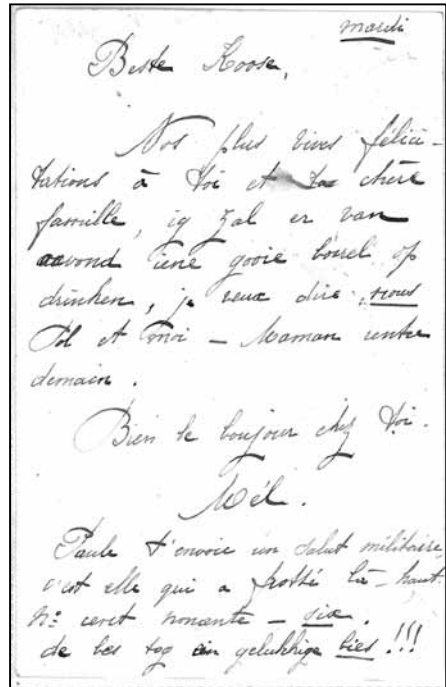 mardi
Beste Koose,
Nos plus vives félici-
tations à toi et ta chère
famille, ig zal er van
aavond iene gooie borrel op
drinken, je veux dire, nous
Pol et moi – Maman rentre
demain.
Bien le bonjour chez toi.
Mél.
Paule t'envoie un salut militaire,
c'est elle qui a frotté là-haut.
n° cent nonante – six.
de bes tog ein gelukkige bies!!!